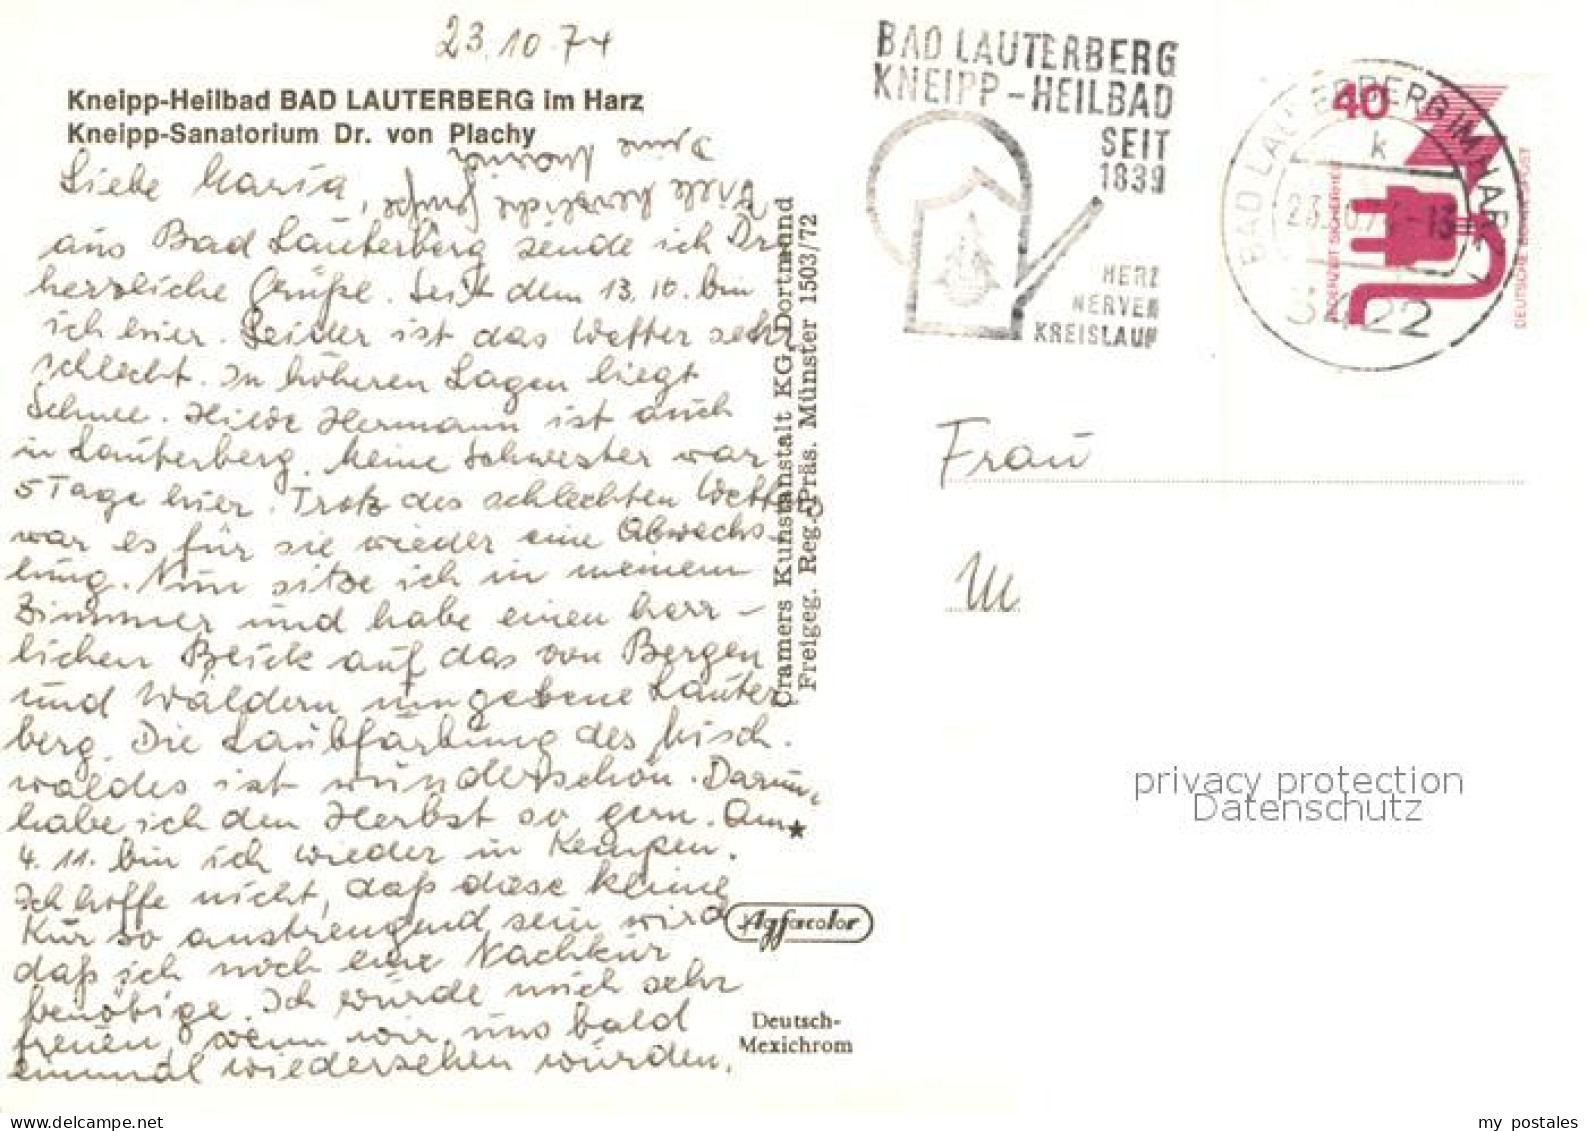 23.10.74
Kneipp-Heilbad BAD LAUTERBERG im Harz
Kneipp-Sanatorium Dr. von Plachy
Liebe Maria,
aus Bad Lauterberg sende ich Dir
herzliche Grüße. Seit dem 13.10. bin
ich hier. Leider ist das Wetter sehr
schlecht. In höheren Lagen liegt
Schnee. Hilde Hermann ist auch
in Lauterberg. Meine Schwester war
5 Tage hier. Trotz des schlechten Wetters
war es für sie wieder eine Abwechs-
lung. Nun sitze ich in meinem
Zimmer und habe einen herr-
lichen Blick auf das von Bergen
und Wäldern umgebene Lauter-
berg. Die Laubfärbung des Misch-
waldes ist wunderschön. Darum
habe ich den Herbst so gern. Am
4.11. bin ich wieder in Kempen.
Ich hoffe nicht, daß diese kleine
Kur so anstrengend sein wird
daß ich noch eine Nachkur
benötige. Ich würde mich sehr
freuen, wenn wir uns bald
einmal wiedersehen würden.
Viele herzliche Grüße,
Deine
Cramers Kunstanstalt KG, Dortmund
Freigeg. Reg.-Präs. Münster 1503/72
Agfacolor
Deutsch-
Mexichrom
BAD LAUTERBERG
KNEIPP-HEILBAD
SEIT
1839
HERZ
NERVEN
KREISLAUF
BAD LAUTERBERG IM HARZ
k
40
JEDERZEIT SICHERHEIT
DEUTSCHE BUNDESPOST
Frau
M
privacy protection
Datenschutz
my postales